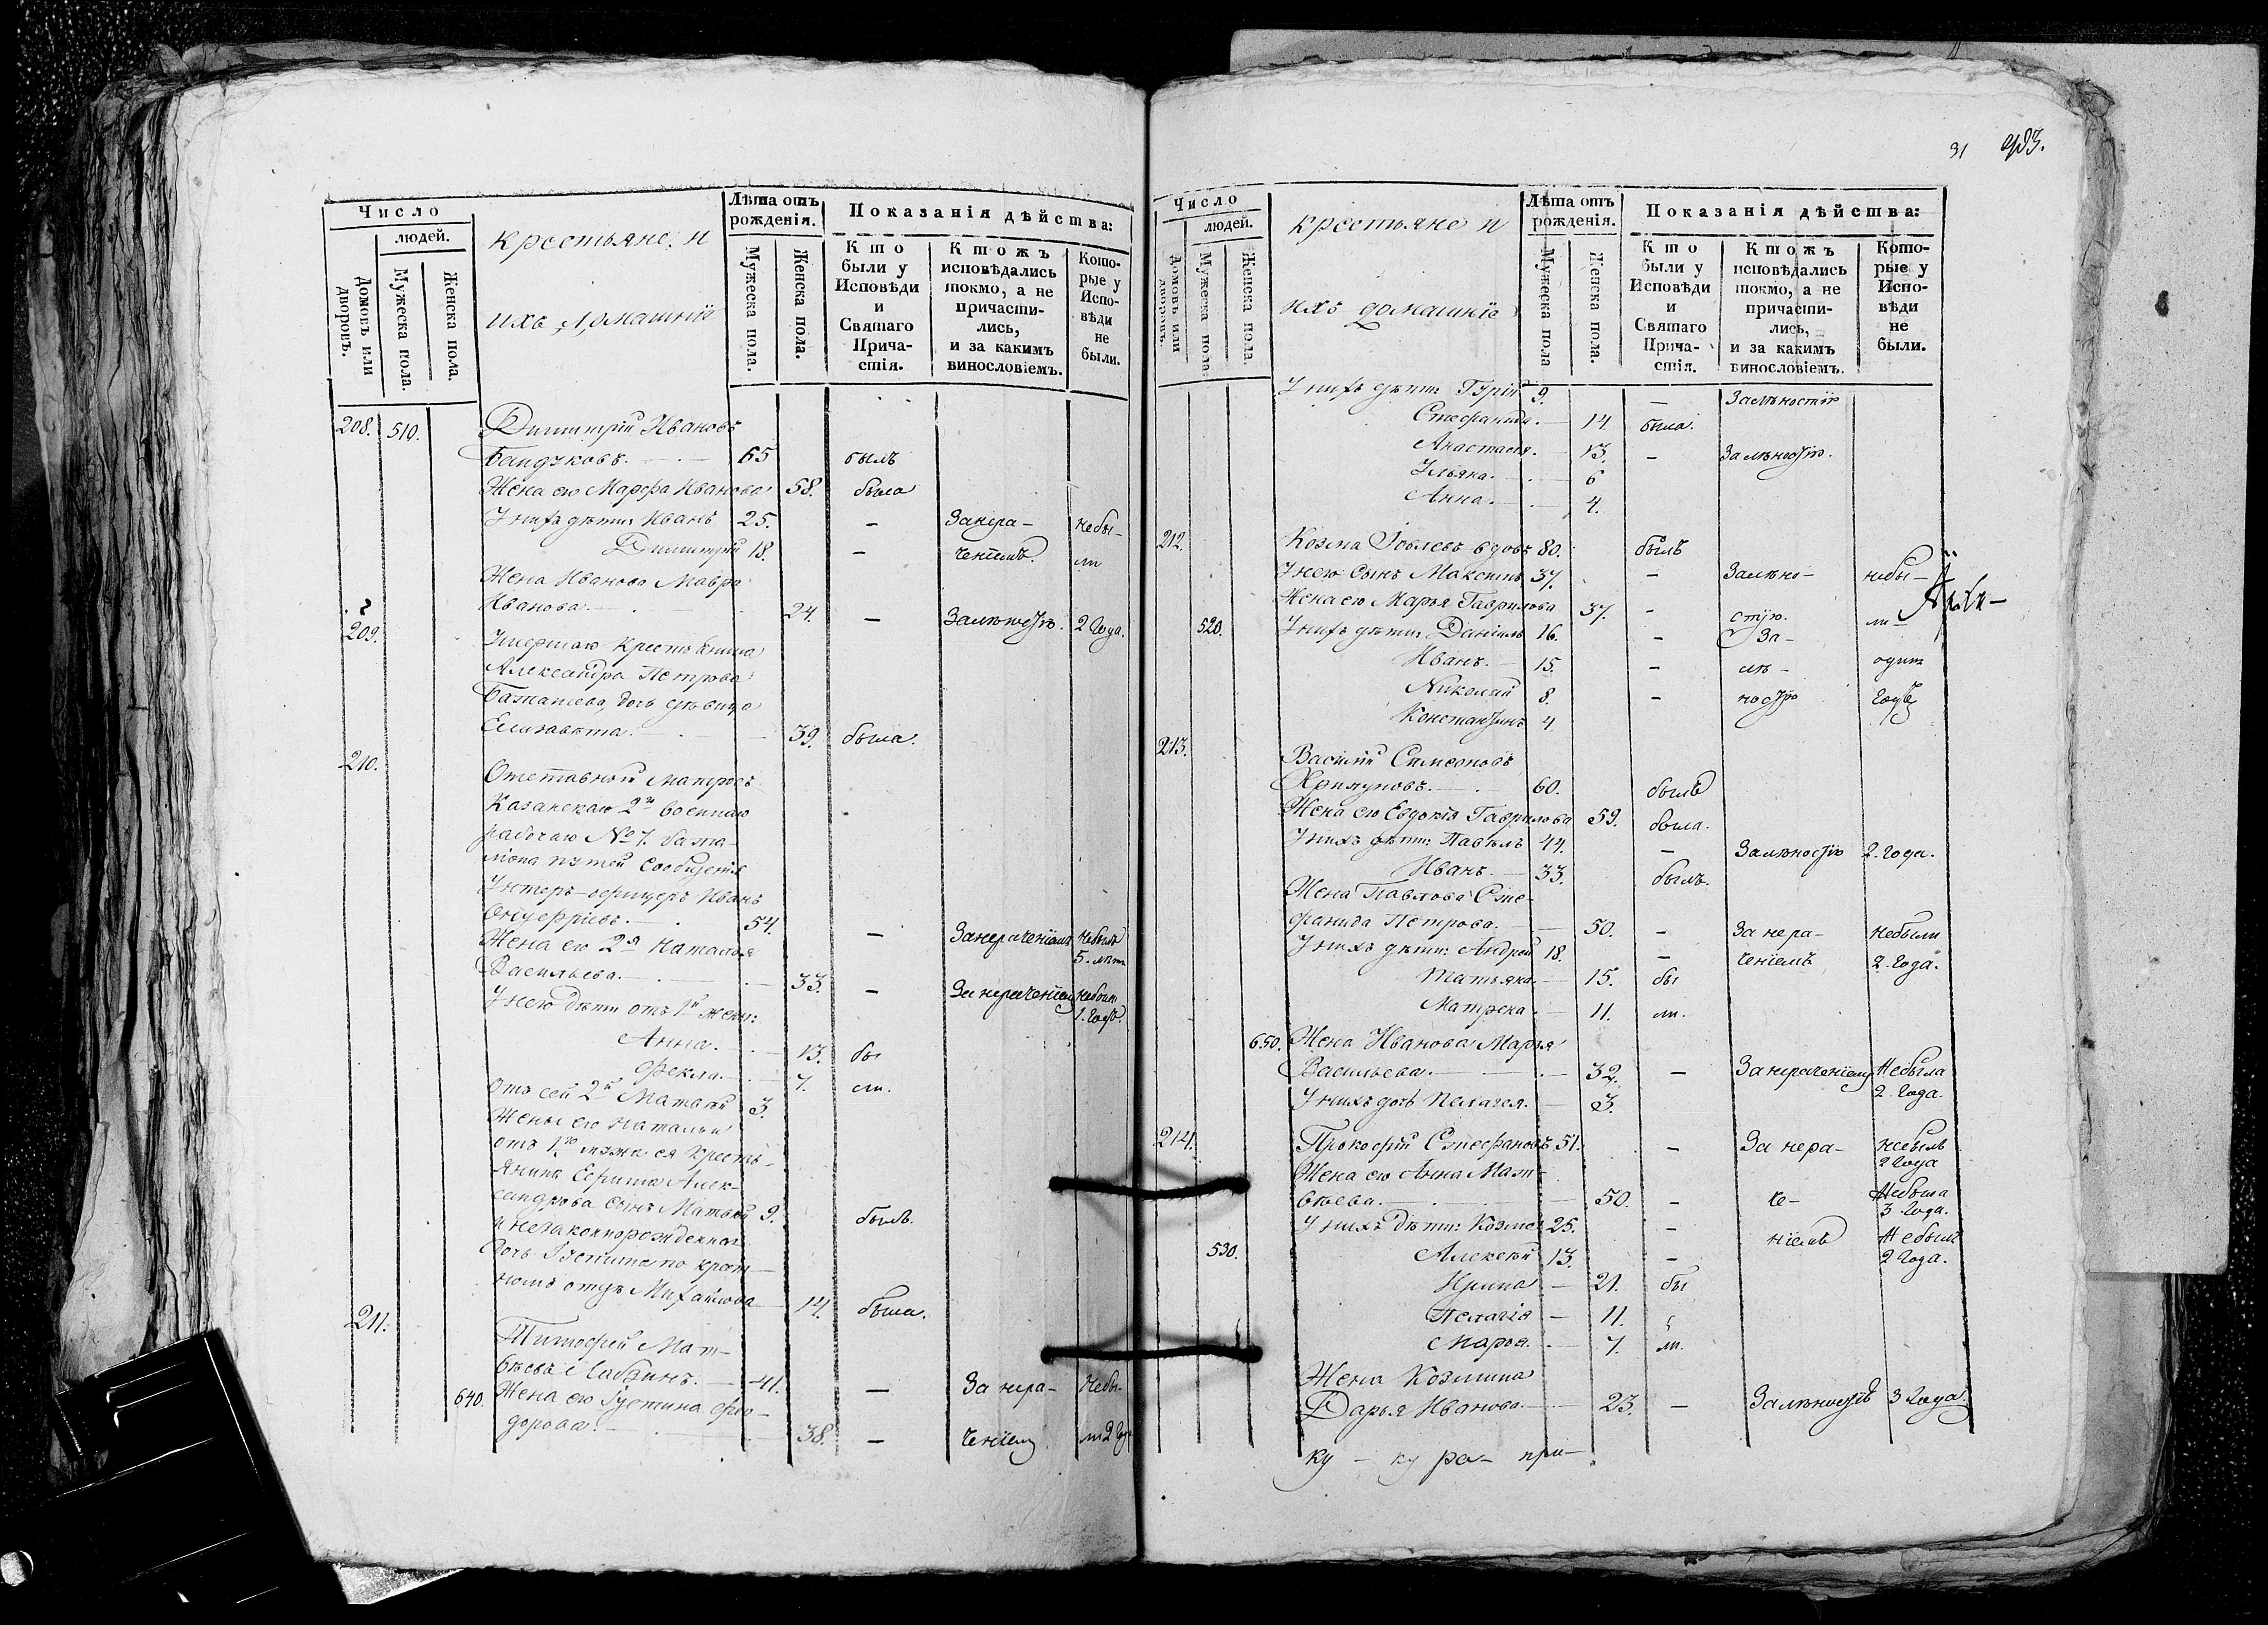 Число
людей.
Домовъ или дворовъ.
Мужеска пола.
Женска пола.
крестьяне и
ихъ домашнiе
Лѣта отъ рожденія.
Мужеска пола.
Женска пола.
Показанія дѣйства:
Кто были у Исповѣди и Святаго Причастія.
Ктожъ исповѣдались токмо, а не причастились, и за какимъ винословіемъ.
Которые у Исповѣди не были.
208. 510. Димитрій Ивановъ
65 былъ
Жена его Марфа Иванова 58. была
У нихъ дѣти: Иванъ 25. — За нера- небы-
Димитрій 18. — ченіемъ. ли
Жена Иванова Мавра
Иванова. 24. — За лѣностію. 2 года.
209.
Александра Петрова
дочь дѣвица
Елизавета. 39. была.
210. Отставной матросъ
Казанскаго 2го военнаго
рабочаго № 7. бата-
ліона путей Сообщенія
Унтеръ-офицеръ Иванъ
54. — За нераченіемъ небылъ
5. лѣтъ
Жена его 2я Наталья
Васильева. 33. — За нераченіемъ небыла
1. годъ.
У него дѣти отъ 1й жены:
Анна. 13. бы
Фекла. 7. ли.
Отъ сей 2й Матвей 3.
Жены его Натальи
отъ 1го мужа ея кресть-
янина Ефрима Алек-
сандрова сынъ Матвей 9. былъ.
и незаконнорожденная
дочь Іустина по крест-
номъ отцѣ Михайлова 14. была.
211. Тимофей Мат-
вѣевъ 41. — За нера- Небы-
640. Жена его Іустина Фео-
дорова. 38. — ченіемъ ли 2 года
31 483.
Число
людей.
Домовъ или дворовъ.
Мужеска пола.
Женска пола.
крестьяне и
ихъ домашнiе
Лѣта отъ рожденія.
Мужеска пола
Женска пола.
Показанія дѣйства:
Кто были у Исповѣди и Святаго Причастія.
Ктожъ исповѣдались токмо, а не причастились, и за какимъ винословіемъ.
Которые у Исповѣди не были.
У нихъ дѣти: Гурій 9. — За лѣностію
Стефанида. 14. была.
Анастасія. 13. — За лѣностію.
Ульяна. 6
Анна. 4.
212. Козма Іовлевъ вдовъ 80. былъ
У него сынъ Максимъ 37. — За лѣно- небы-
Жена его Марья Гаврилова 37. — стію. ли
520. У нихъ дѣти: Даніилъ 16. — За-
Иванъ. 15. — лѣ- одинъ
Николай 8. — ностію годъ
Константинъ 4
213. Василій Симеоновъ
60. былъ
Жена его Евдокія Гаврилова 59. была.
У нихъ дѣти: Павелъ 44. — За лѣностію 2. года.
Иванъ. 33. былъ.
Жена Павлова Сте-
фанида Петрова. 50. — За нера- Небыли
У нихъ дѣти: Андрей 18. — ченіемъ 2. года.
Татьяна. 15. бы
Матрена. 11. ли.
650. Жена Иванова Марья
Васильева. 32. — За нераченіемъ Небыла
2. года.
У нихъ дочь Пелагея. 3.
214. Прокофій Стефановъ 51. — За нера- небылъ
2 года
Жена его Анна Мат-
вѣева. 50. — че- Небыла
3 года.
У нихъ дѣти: Козма 25. — ніемъ Небылъ
530. Алексѣй 13. — 2 года.
Ирина 21. бы
Пелагія 11.
Марья. 7. ли.
Жена Козмина
Дарья Иванова. 23. — За лѣностію 3 года.
ку — ку ра- при-